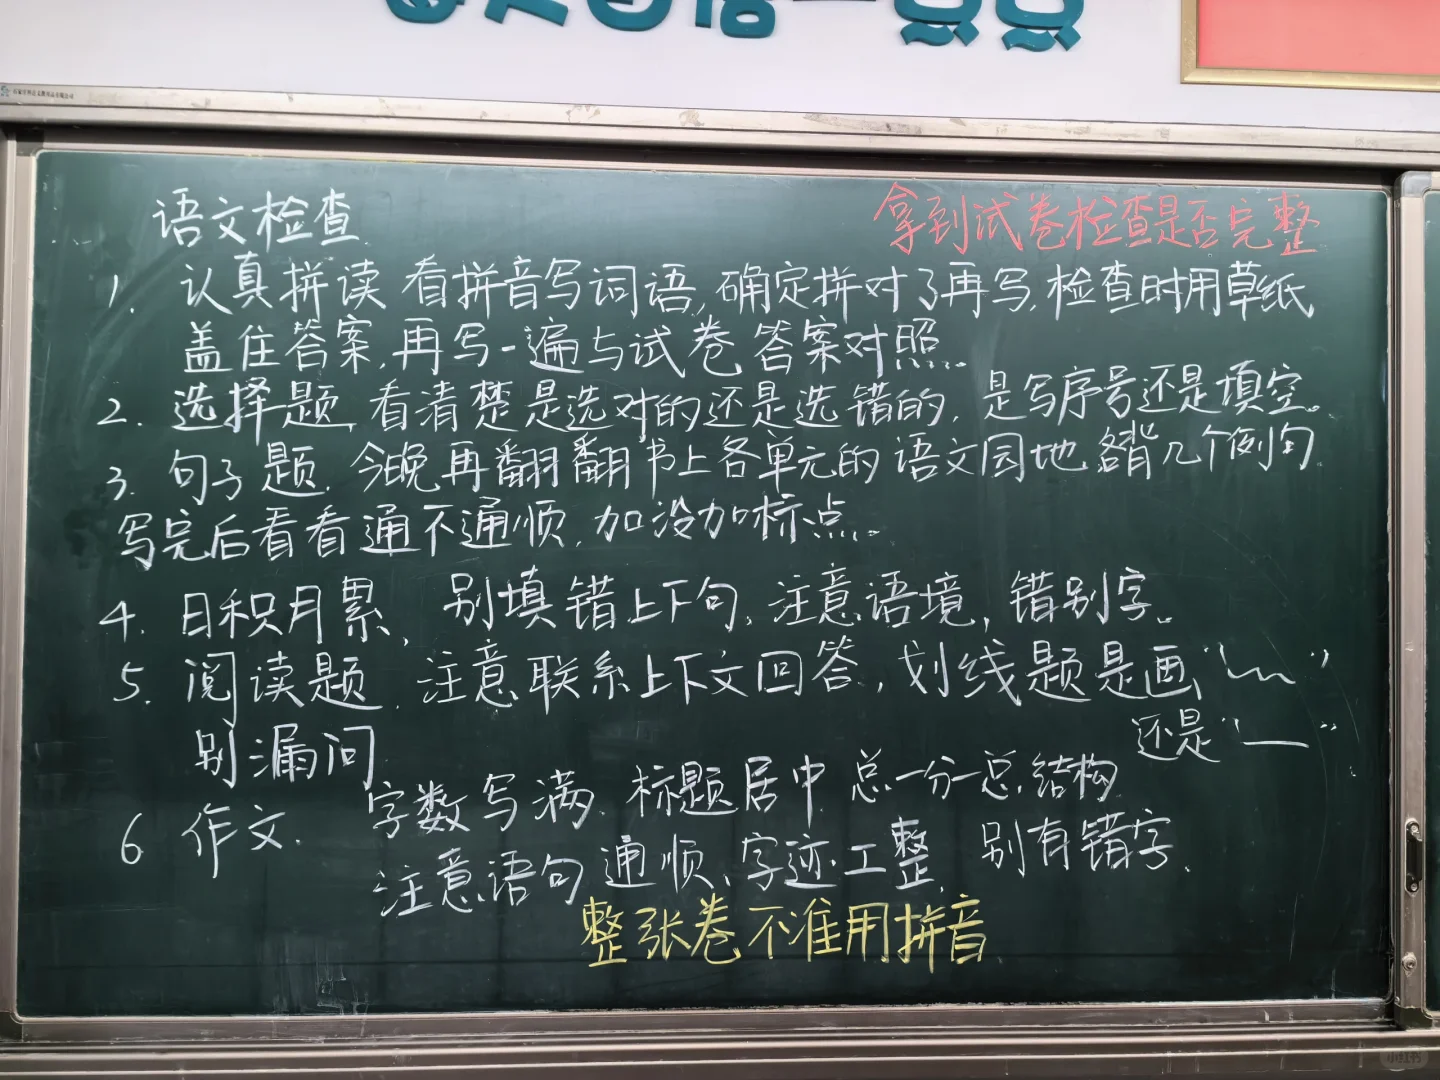 语文检查
拿到试卷检查是否完整
1. 认真拼读 看拼音写词语,确定拼对了再写,检查时用草纸
盖住答案,再写一遍与试卷答案对照。
2. 选择题,看清楚是选对的还是选错的,是写序号还是填空。
3. 句子题.今晚再翻翻书上各单元的语文园地各背几个例句.
写完后看看通不通顺,加没加标点。
4. 日积月累,别填错上下句,注意语境,错别字。
5. 阅读题.注意联系上下文回答,划线题是画“﹏”
还是“__”
别漏问
6 作文. 字数写满.标题居中 总一分一总结构
注意语句通顺、字迹工整. 别有错字.
整张卷不准用拼音
小红书